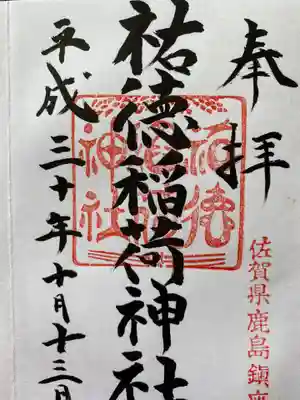 奉拝
佐賀県鹿島鎮座
祐徳稲荷神社
祐徳
稲荷
神社
平成三十年十月十三日